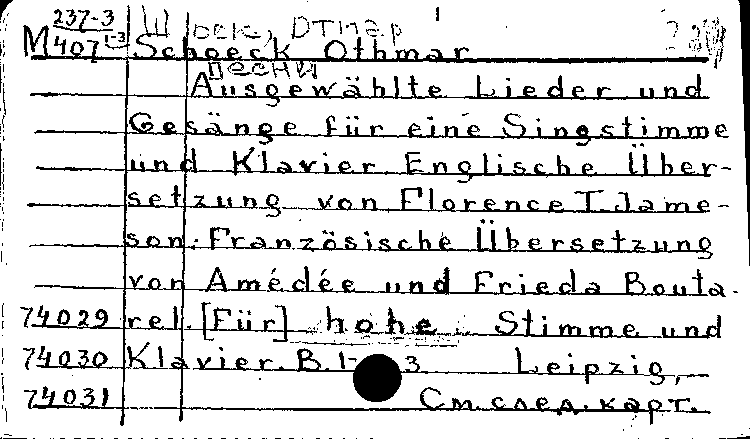 237-3
М 407 1-3
Шоек, Отмар
Schoeck Othmar
Песни
Ausgewählte Lieder und
Gesänge für eine Singstimme
und Klavier Englische Über-
setzung von Florence T. Jame-
son. Französische Übersetzung
von Amédée und Frieda Bouta-
74029 rel. [Für] hohe Stimme und
74030 Klavier. B. 1-3 Leipzig,
74031 См. след. карт.